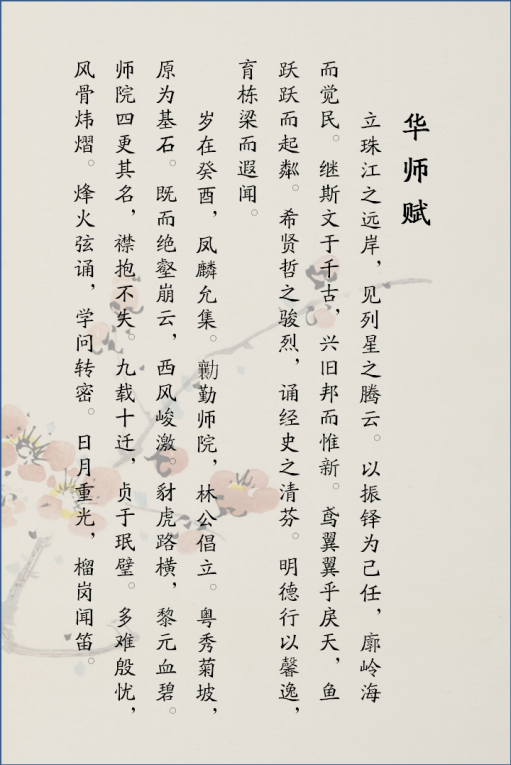 华师赋
立珠江之远岸，见列星之腾云。以振铎为己任，廓岭海
而觉民。继斯文于千古，兴旧邦而惟新。鸢翼翼乎戾天，鱼
跃跃而起粼。希贤哲之骏烈，诵经史之清芬。明德行以馨逸，
育栋梁而遐闻。
岁在癸酉，凤麟允集。勷勤师院，林公倡立。粤秀菊坡，
原为基石。既而绝壑崩云，西风峻激。豺虎路横，黎元血碧。
师院四更其名，襟抱不失。九载十迁，贞于珉璧。多难殷忧，
风骨炜熠。烽火弦诵，学问转密。日月重光，榴岗闻笛。